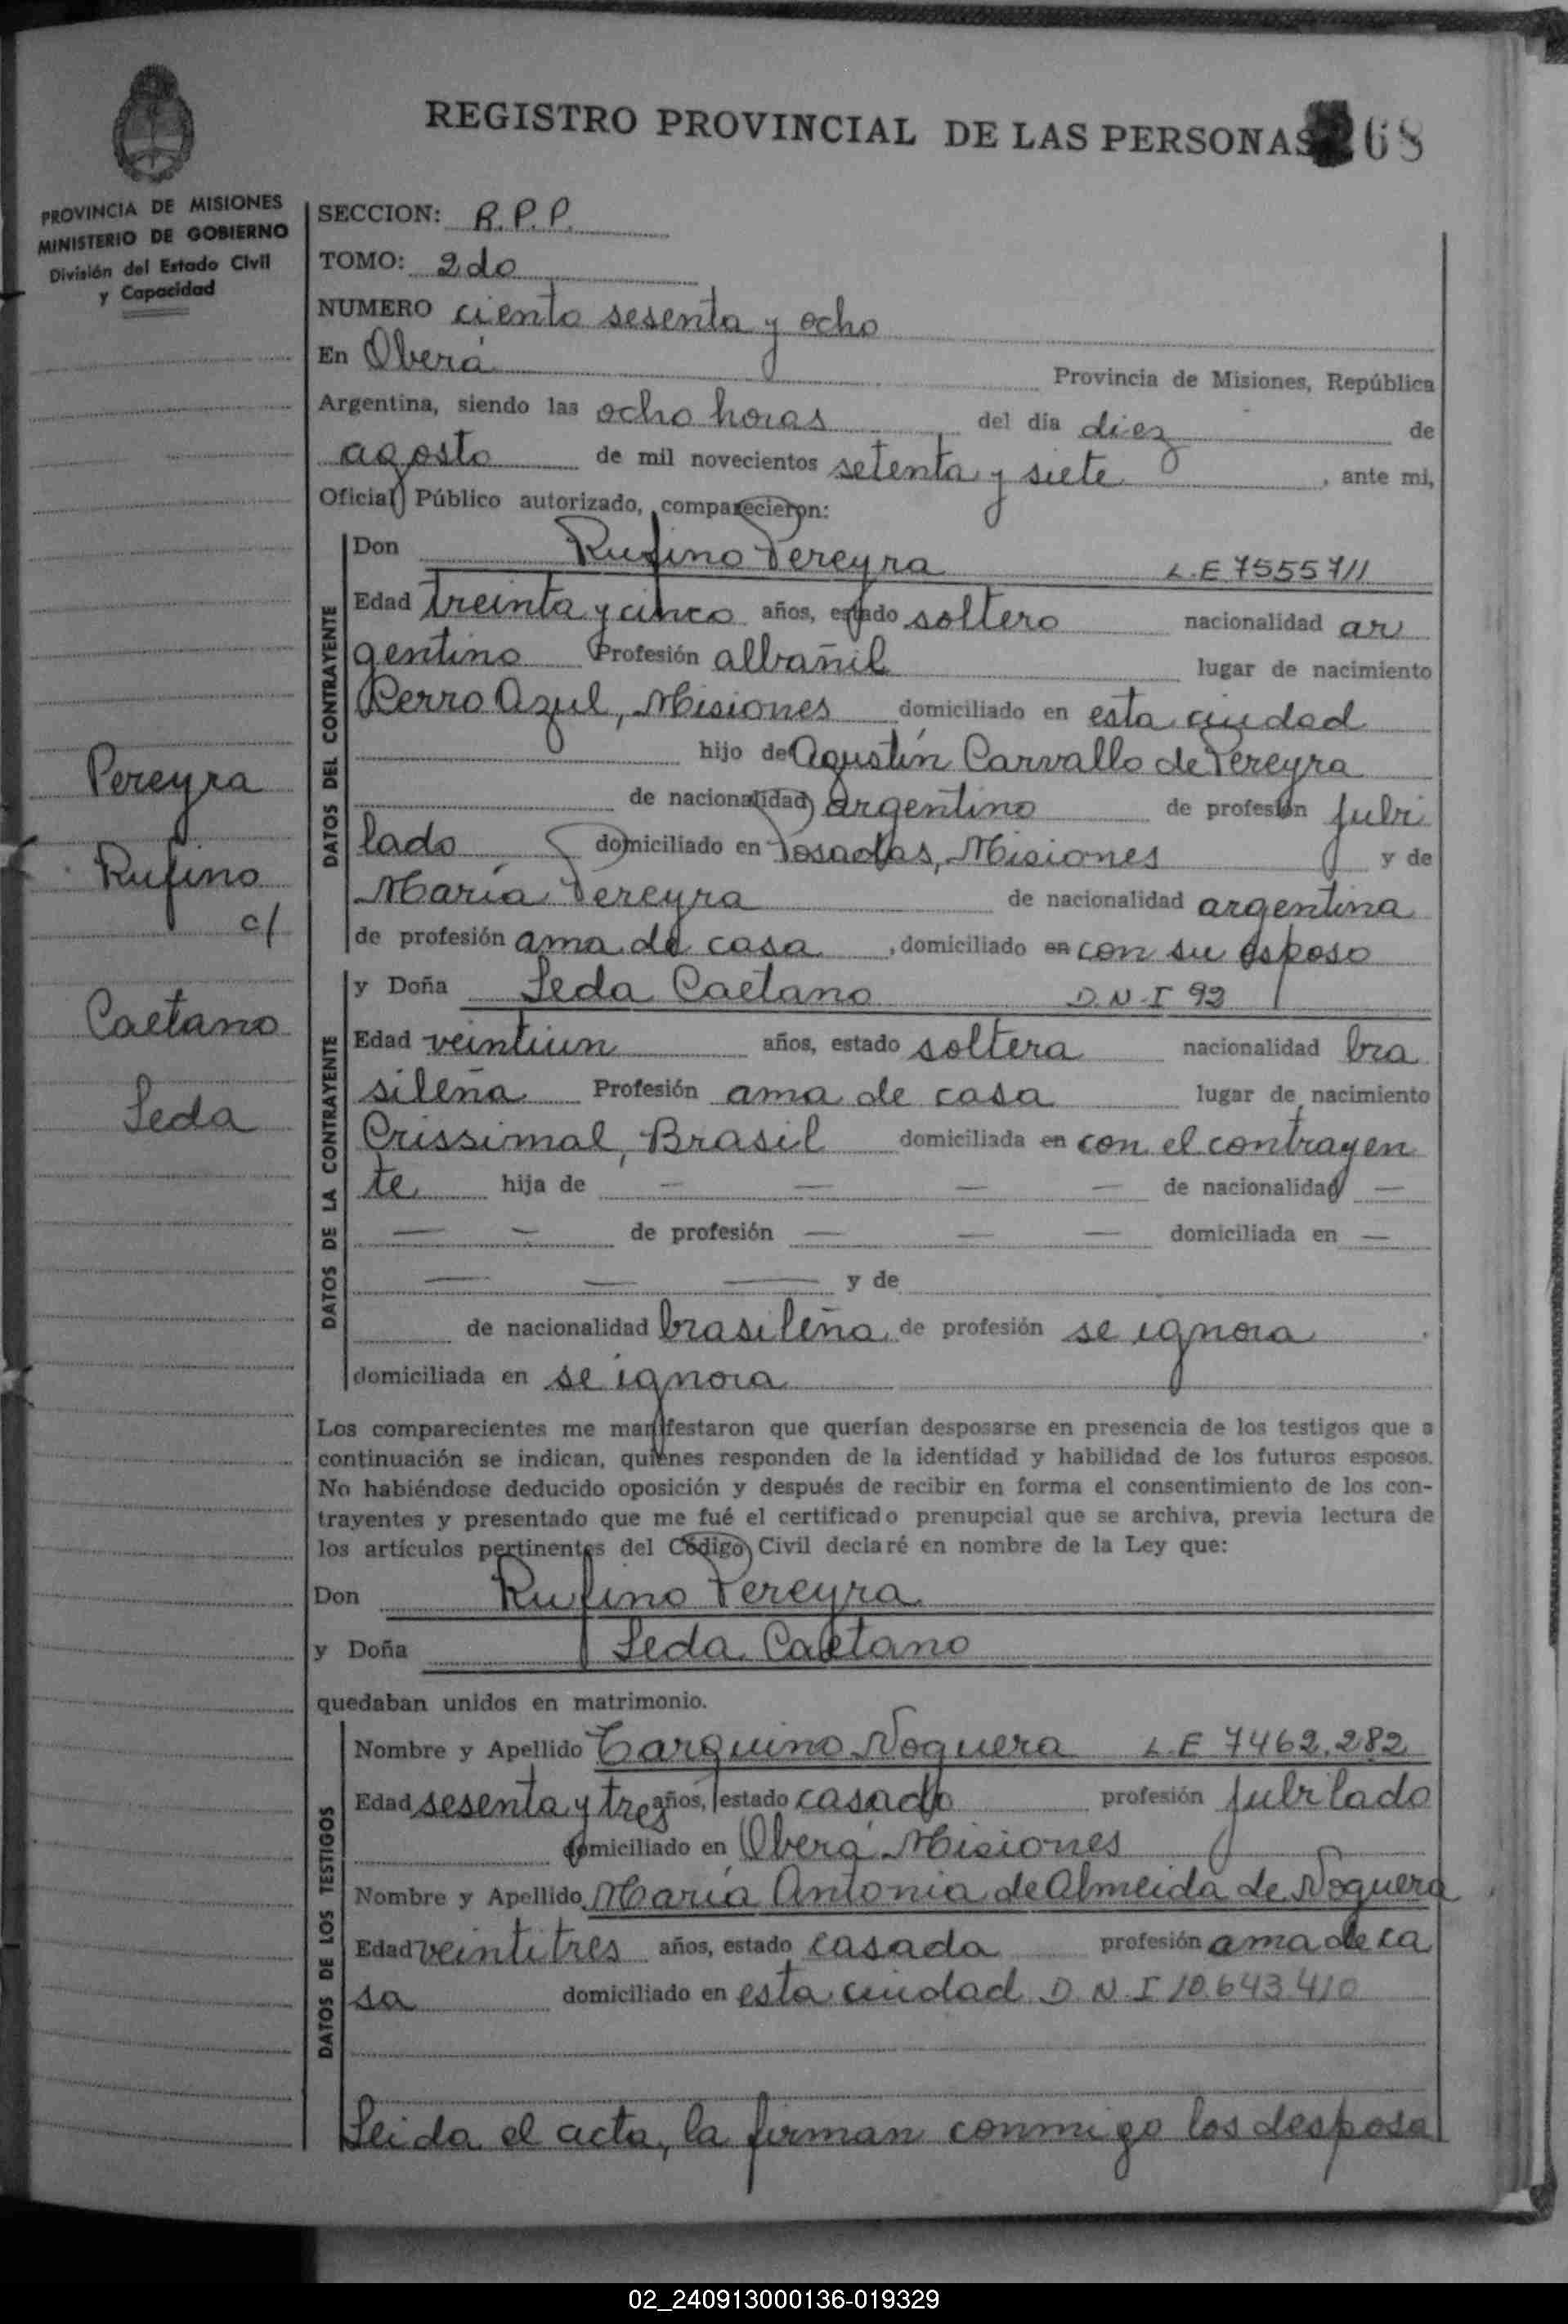 REGISTRO PROVINCIAL DE LAS PERSONAS 268
PROVINCIA DE MISIONES
MINISTERIO DE GOBIERNO
División del Estado Civil
y Capacidad
SECCION: R.P.P.
TOMO: 2do
NUMERO ciento sesenta y ocho
En Oberá Provincia de Misiones, República
Argentina, siendo las ocho horas del día diez de
agosto de mil novecientos setenta y siete, ante mi,
Oficial Público autorizado, comparecieron:
DATOS DEL CONTRAYENTE
Don Rufino Pereyra L.E 7555711
Edad treinta y cinco años, estado soltero nacionalidad ar
gentino Profesión albañil lugar de nacimiento
Cerro Azul, Misiones domiciliado en esta ciudad
hijo de Agustín Carvallo de Pereyra
de nacionalidad argentino de profesión jubi
lado domiciliado en Posadas, Misiones y de
María Pereyra de nacionalidad argentina
de profesión ama de casa, domiciliado en con su esposo
Pereyra
Rufino
c/
Caetano
Leda
DATOS DE LA CONTRAYENTE
y Doña Leda Caetano D.N.I 92
Edad veintiun años, estado soltera nacionalidad bra
sileña Profesión ama de casa lugar de nacimiento
Crissimal, Brasil domiciliada en con el contrayen
te hija de — — — — de nacionalidad —
— — de profesión — — — domiciliada en —
— — — y de
de nacionalidad brasileña de profesión se ignora
domiciliada en se ignora
Los comparecientes me manifestaron que querían desposarse en presencia de los testigos que a
continuación se indican, quienes responden de la identidad y habilidad de los futuros esposos.
No habiéndose deducido oposición y después de recibir en forma el consentimiento de los con-
trayentes y presentado que me fué el certificado prenupcial que se archiva, previa lectura de
los artículos pertinentes del Código Civil declaré en nombre de la Ley que:
Don Rufino Pereyra
y Doña Leda Caetano
quedaban unidos en matrimonio.
DATOS DE LOS TESTIGOS
Nombre y Apellido Tarquino Noguera L.E 7462.282
Edad sesenta y tres años, estado casado profesión jubilado
domiciliado en Oberá Misiones
Nombre y Apellido María Antonia de Almeida de Noguera
Edad veintitres años, estado casada profesión ama de ca
sa domiciliado en esta ciudad D.N.I 10.643.410
Leida el acta, la firman conmigo los desposa
02_240913000136-019329